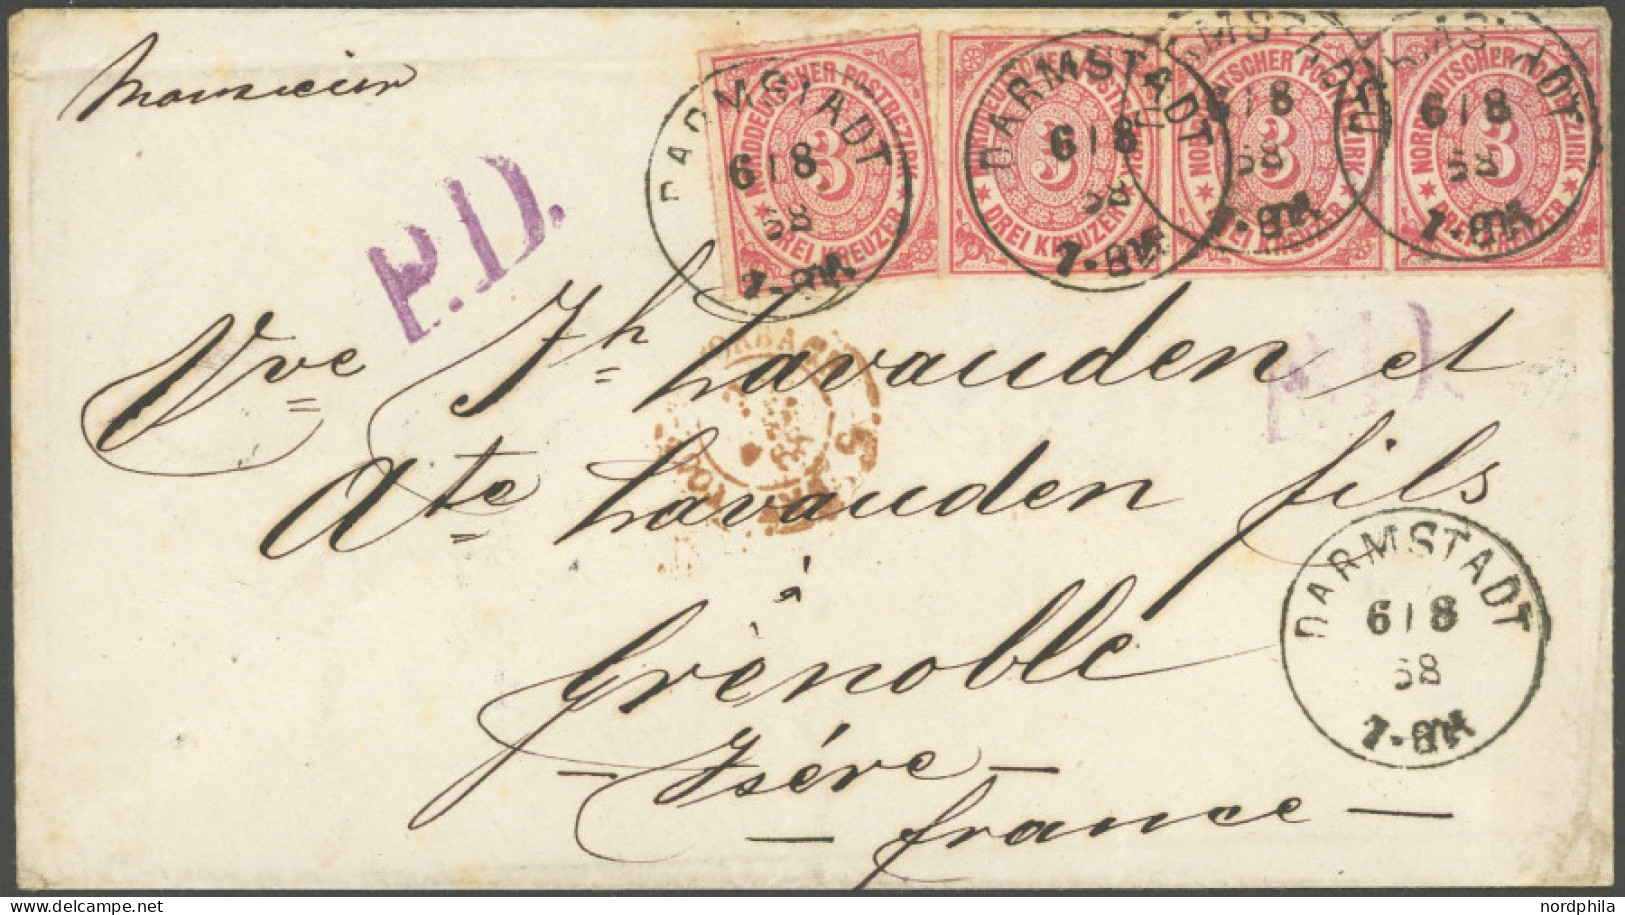 Monsieur
P.D.
NORDDEUTSCHER POSTBEZIRK
3
DREI KREUZER
NORDDEUTSCHER POSTBEZIRK
3
DREI KREUZER
NORDDEUTSCHER POSTBEZIRK
3
DREI KREUZER
NORDDEUTSCHER POSTBEZIRK
3
DREI KREUZER
DARMSTADT
6 | 8
68
DARMSTADT
6 | 8
68
DARMSTADT
6 | 8
68
DARMSTADT
6 | 8
68
Vve Jh Lavauden et
P.D.
Ate Lavauden fils
à
Grènoble
DARMSTADT
6 | 8
68
- Isére -
- france -
www.delcampe.net
nordphila